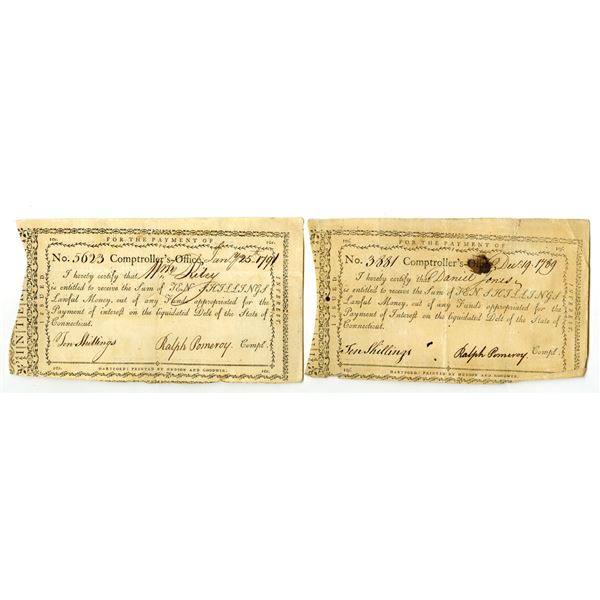 FOR THE PAYMENT OF
10s. 10s.
No. 5623 Comptroller's-Office, Jan'y 25 1791
I hereby certify that Wm
is entitled to receive the Sum of TEN SHILLINGS
Lawful Money, out of any Fund appropriated for the
Payment of interest on the liquidated Debt of the State of
Connecticut.
Ten Shillings Ralph Pomeroy, Compt.
10s. 10s.
HARTFORD: PRINTED BY HUDSON AND GOODWIN.
FOR THE PAYMENT OF
10s. 10s.
No. 3881 Comptroller's 19 1789
I hereby certify that Daniel Jones
is entitled to receive the Sum of TEN SHILLINGS
Lawful Money, out of any Funds appropriated for the
Payment of Interest on the liquidated Debt of the State of
Connecticut.
Ten Shillings Ralph Pomeroy, Compt.
10s. 10s.
HARTFORD: PRINTED BY HUDSON AND GOODWIN.